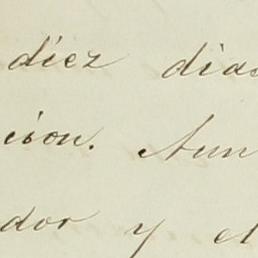 diez dias
cion. Aun
dor y el